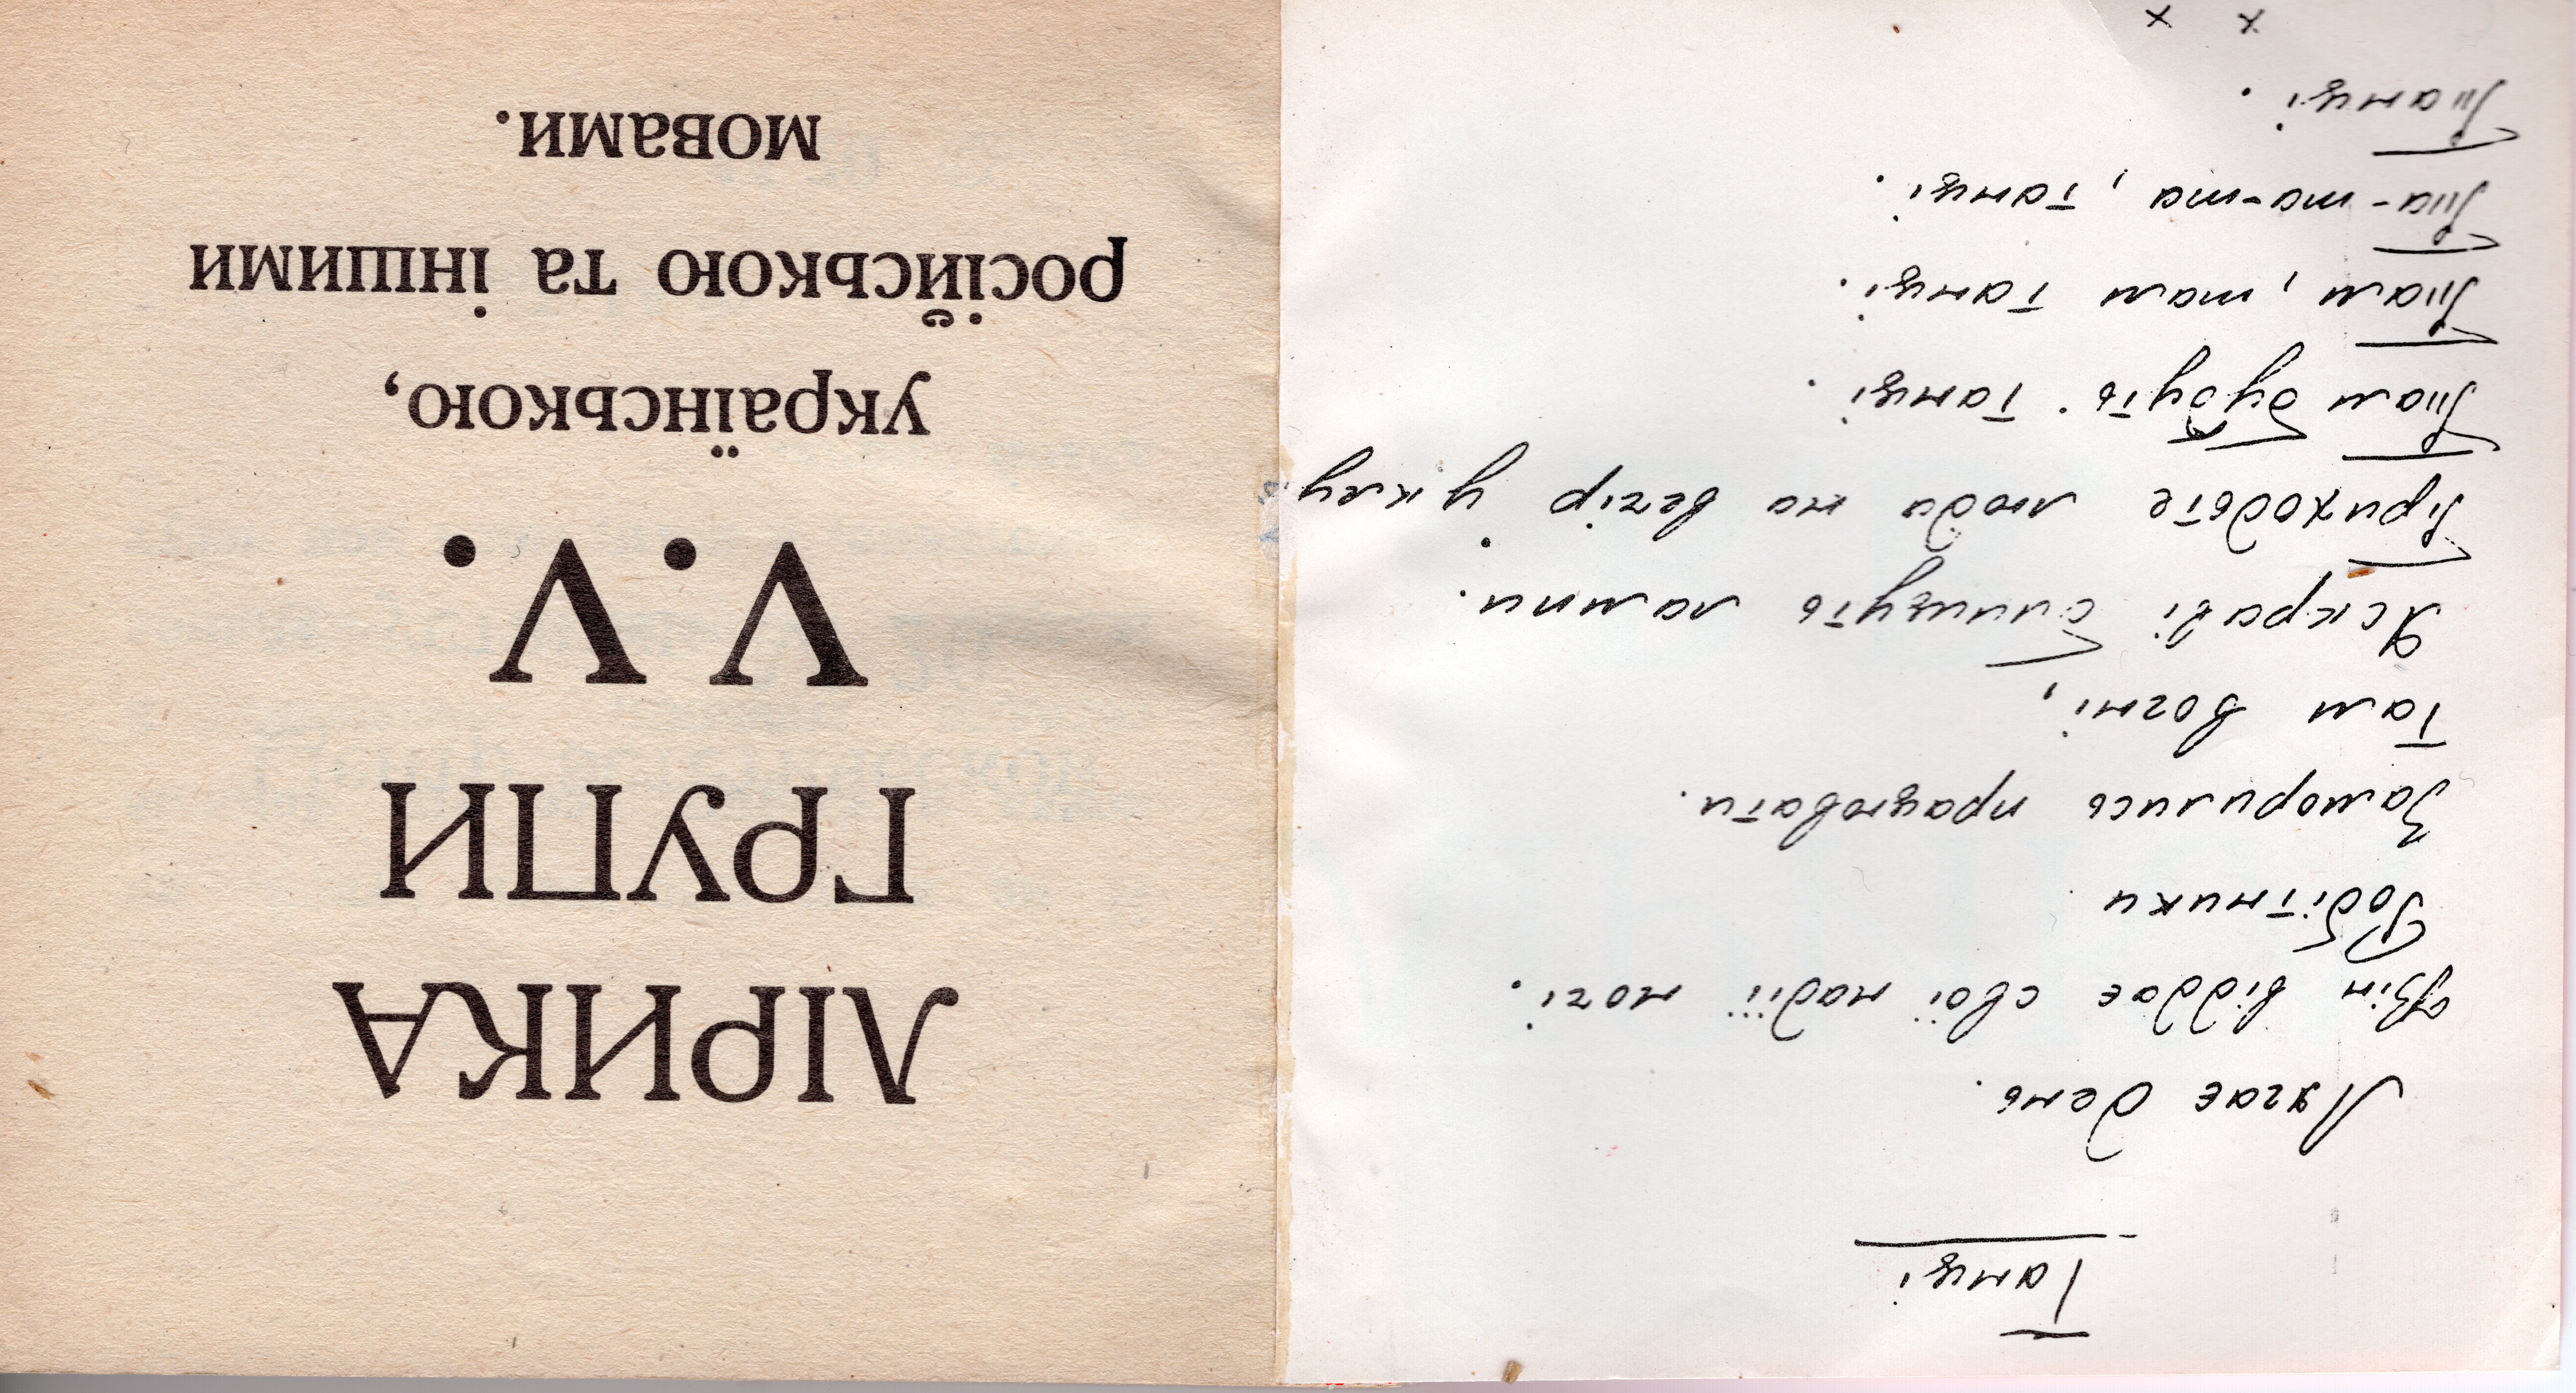 Танці
Лягає день.
Він віддає свої надії ночі.
Робітники
Заморились працювати.
Там вогні,
Яскраві блищуть лампи.
Приходьте люди на вечір у клу
Там будуть танці.
Там, там танці.
Та-та-та, танці.
Танці.
х х
ЛІРИКА
ГРУПИ
V.V.
українською,
російською та іншими
мовами.